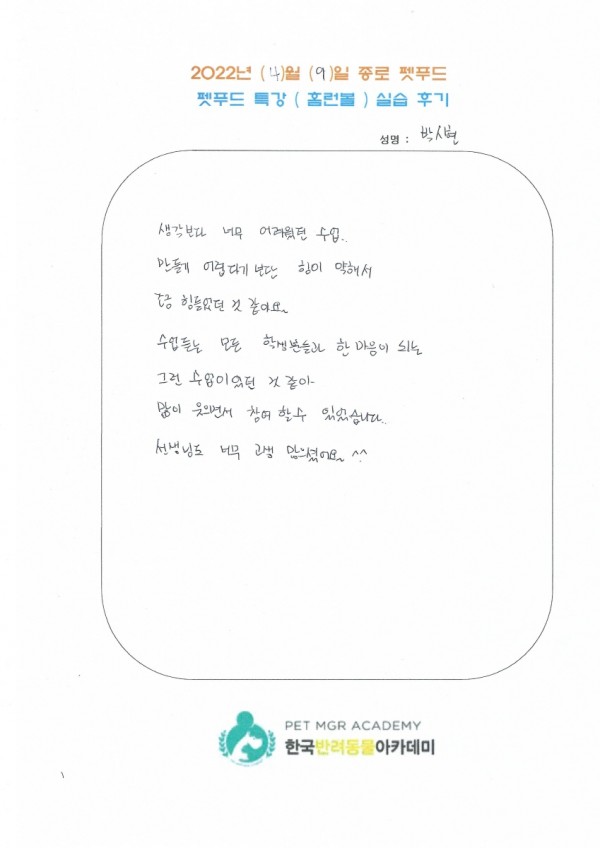 2022년 (4)월 (9)일 종로 펫푸드
펫푸드 특강 ( 홈런볼 ) 실습 후기
성명 : 박시현
생각보다 너무 어려웠던 수업..
만들기 어렵다기 보단 힘이 약해서
조금 힘들었던 것 같아요~
수업듣는 모든 학생분들과 한 마음이 되는
그런 수업이었던 것 같아
많이 웃으면서 참여 할 수 있었습니다..
선생님도 너무 고생 많으셨어요~ ^^
PET MGR ACADEMY
한국반려동물아카데미